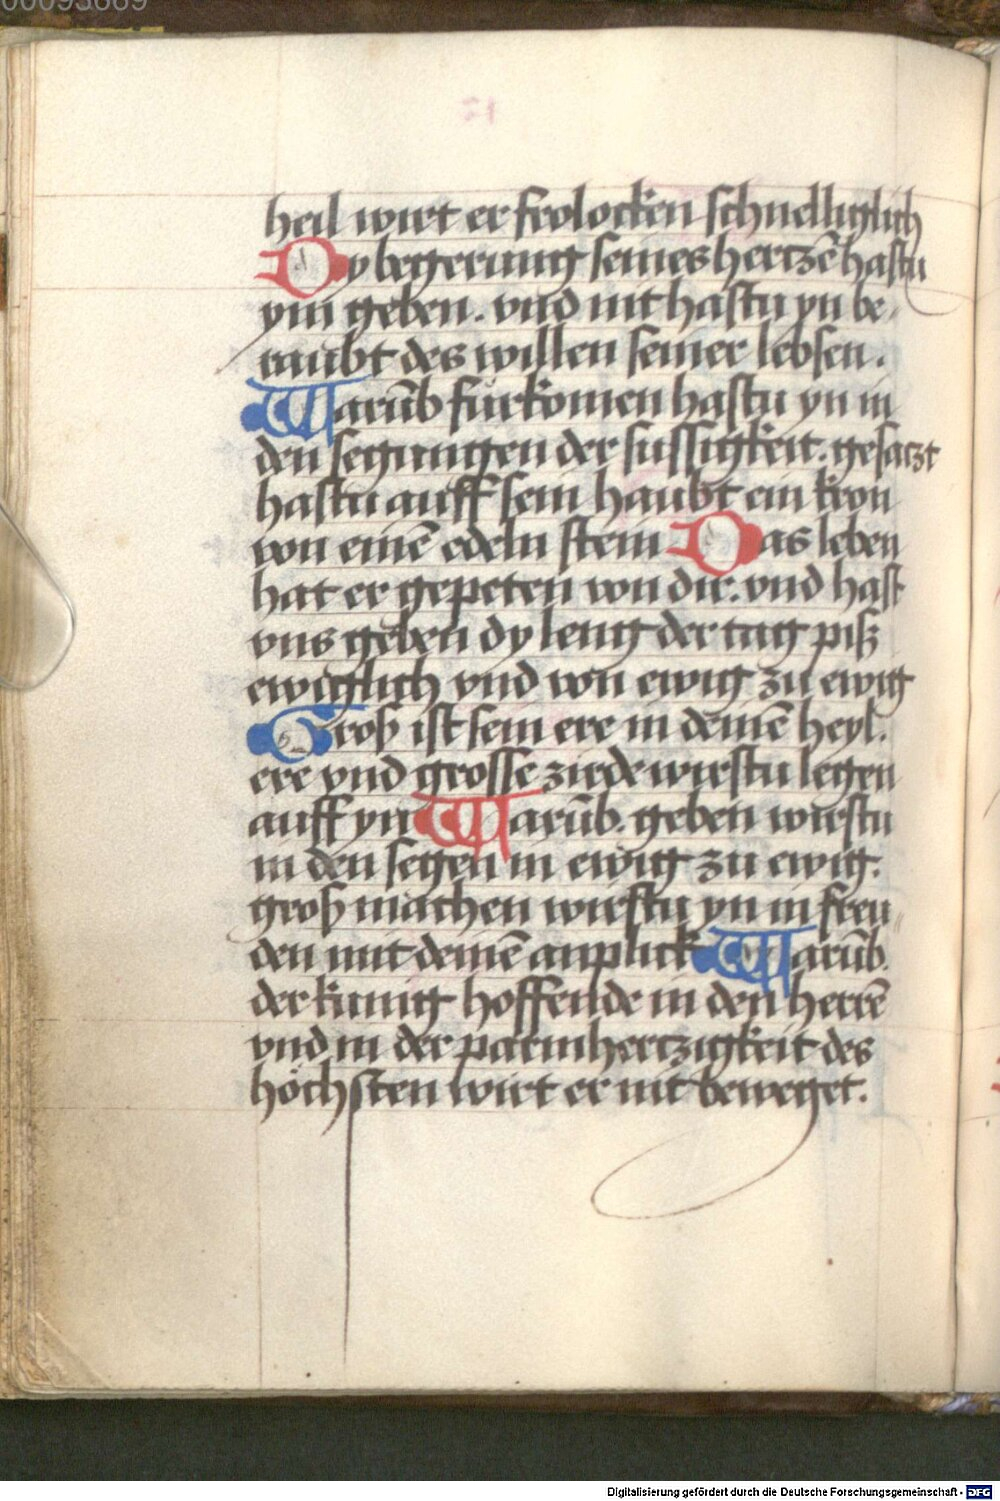 00093669
17
heil wirt er frolocken schnelliglich
Dy begerung seines hertzē hastu
ym geben. vnd nit hastu yn be,
raubt des willen seiner lebsen.
Warūb fürkomen hastu yn in
den segungen der sussigkeit. gesaczt
hastu auff sein haubt ein kron
von einē edeln stein Das leben
hat er gepeten von dir. vnd hast
vns geben dy leng der tag pisz
ewiglich vnd von ewig zu ewig
Groß ist sein ere in deinē heyl.
ere vnd grosse zirde wirstu legen
auff yn Warūb. geben wirstu
in den segen in ewig zu ewig.
groß machen wirstu yn in freu„
den mit deinē anplick Warūb.
der kunig hoffende in den herrē
vnd in der parmhertzigkeit des
höchsten wirt er nit beweget.
Digitalisierung gefördert durch die Deutsche Forschungsgemeinschaft - DFG